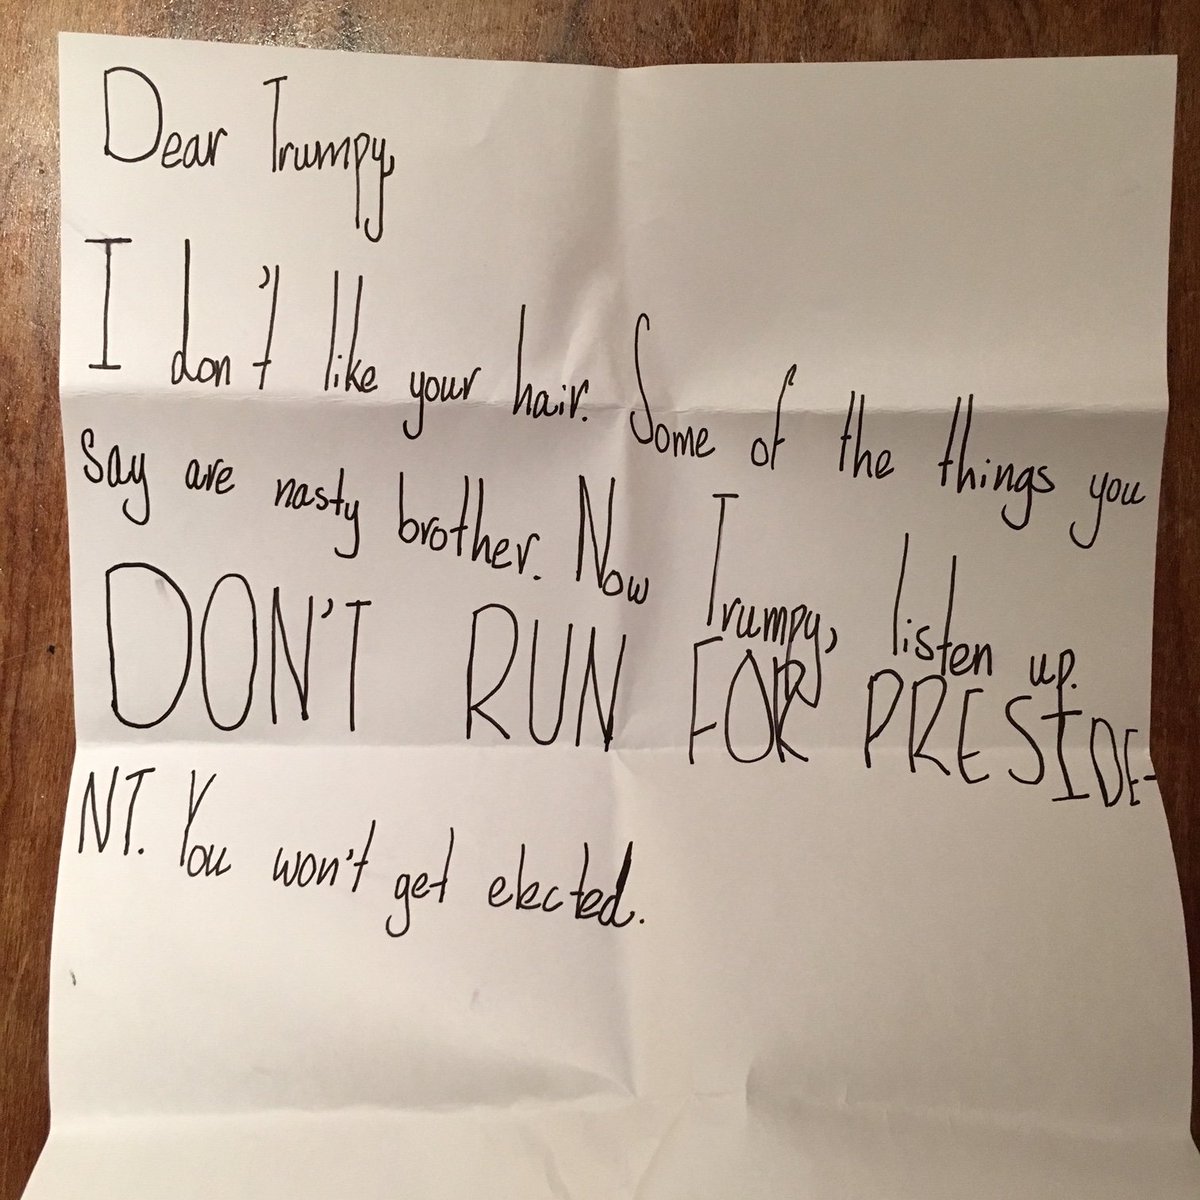 Dear Trumpy,
I don't like your hair. Some of the things you
say are nasty brother. Now Trumpy, listen up.
DON'T RUN FOR PRESIDE-
NT. You won't get elected.